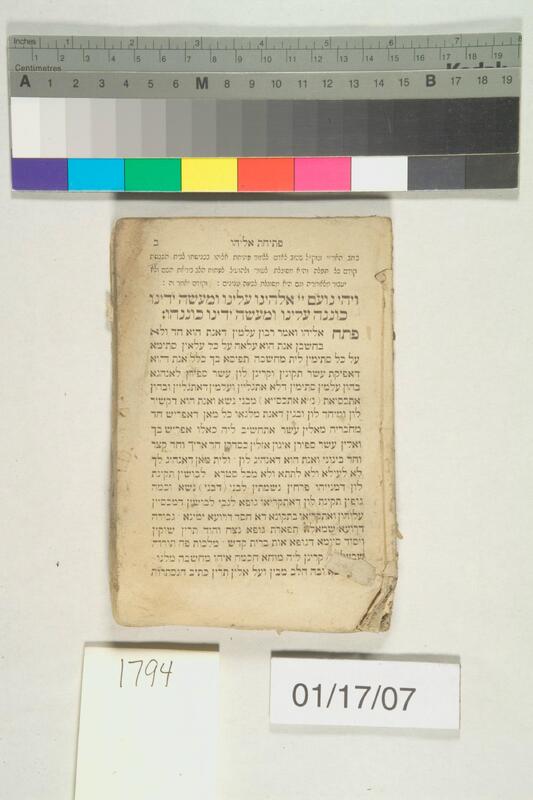 Inches 1 2 3 4 5 6 7 8
1 2 3 4 5 6 7 8 9 10 11 12 13 14 15 16 17 18 19
Centimetres Kodak
A 1 2 3 4 5 6 M 8 9 10 11 12 13 14 15 B 17 18 19
פתיחת אליהו ב
קודם כל תפלה והיא מסוגלת
ויהי נועם יי אלהינו עלינו ומעשה ידינו
כוננה עלינו ומעשה ידינו כוננהו:
פתח אליהו ואמר רבון עלמין דאנת הוא חד ולא
בחשבן אנת הוא עלאה על כל עלאין סתימא
על כל סתימין לית מחשבה תפיסא בך כלל אנת הוא
דאפיקת עשר תקונין וקרינן לון עשר ספירן לאנהגא
בהון עלמין סתימין דלא אתגליין ועלמין דאתגליין ובהון
אתכסיאת (נ״א אתכסייא) מבני נשא ואנת הוא דקשיר
לון ומיחד לון ובגין דאנת מלגאו כל מאן דאפריש חד
מחבריה מאלין עשר אתחשיב ליה כאלו אפריש בך
ואלין עשר ספירן אינון אזלין כסדרן חד אריך וחד קצר
וחד בינוני ואנת הוא דאנהיג לון ולית מאן דאנהיג לך
לא לעילא ולא לתתא ולא מכל סטרא לבושין תקינת
לון דמנייהו פרחין נשמתין לבני (דבני) נשא וכמה
גופין תקינת לון דאתקריאו גופא לגבי לבושין דמכסיין
עליהון ואתקריאו בתקונא דא חסד דרועא ימינא גבורה
דרועא שמאלא תפארת גופא נצח והוד תרין שוקין
ויסוד סיומא דגופא אות ברית קדש מלכות פה תורה
קרינן ליה מוחא חכמה איהו מחשבה מלגו
ובה הלב מבין ועל אלין תרין כתיב הנסתרות
1794
01/17/07